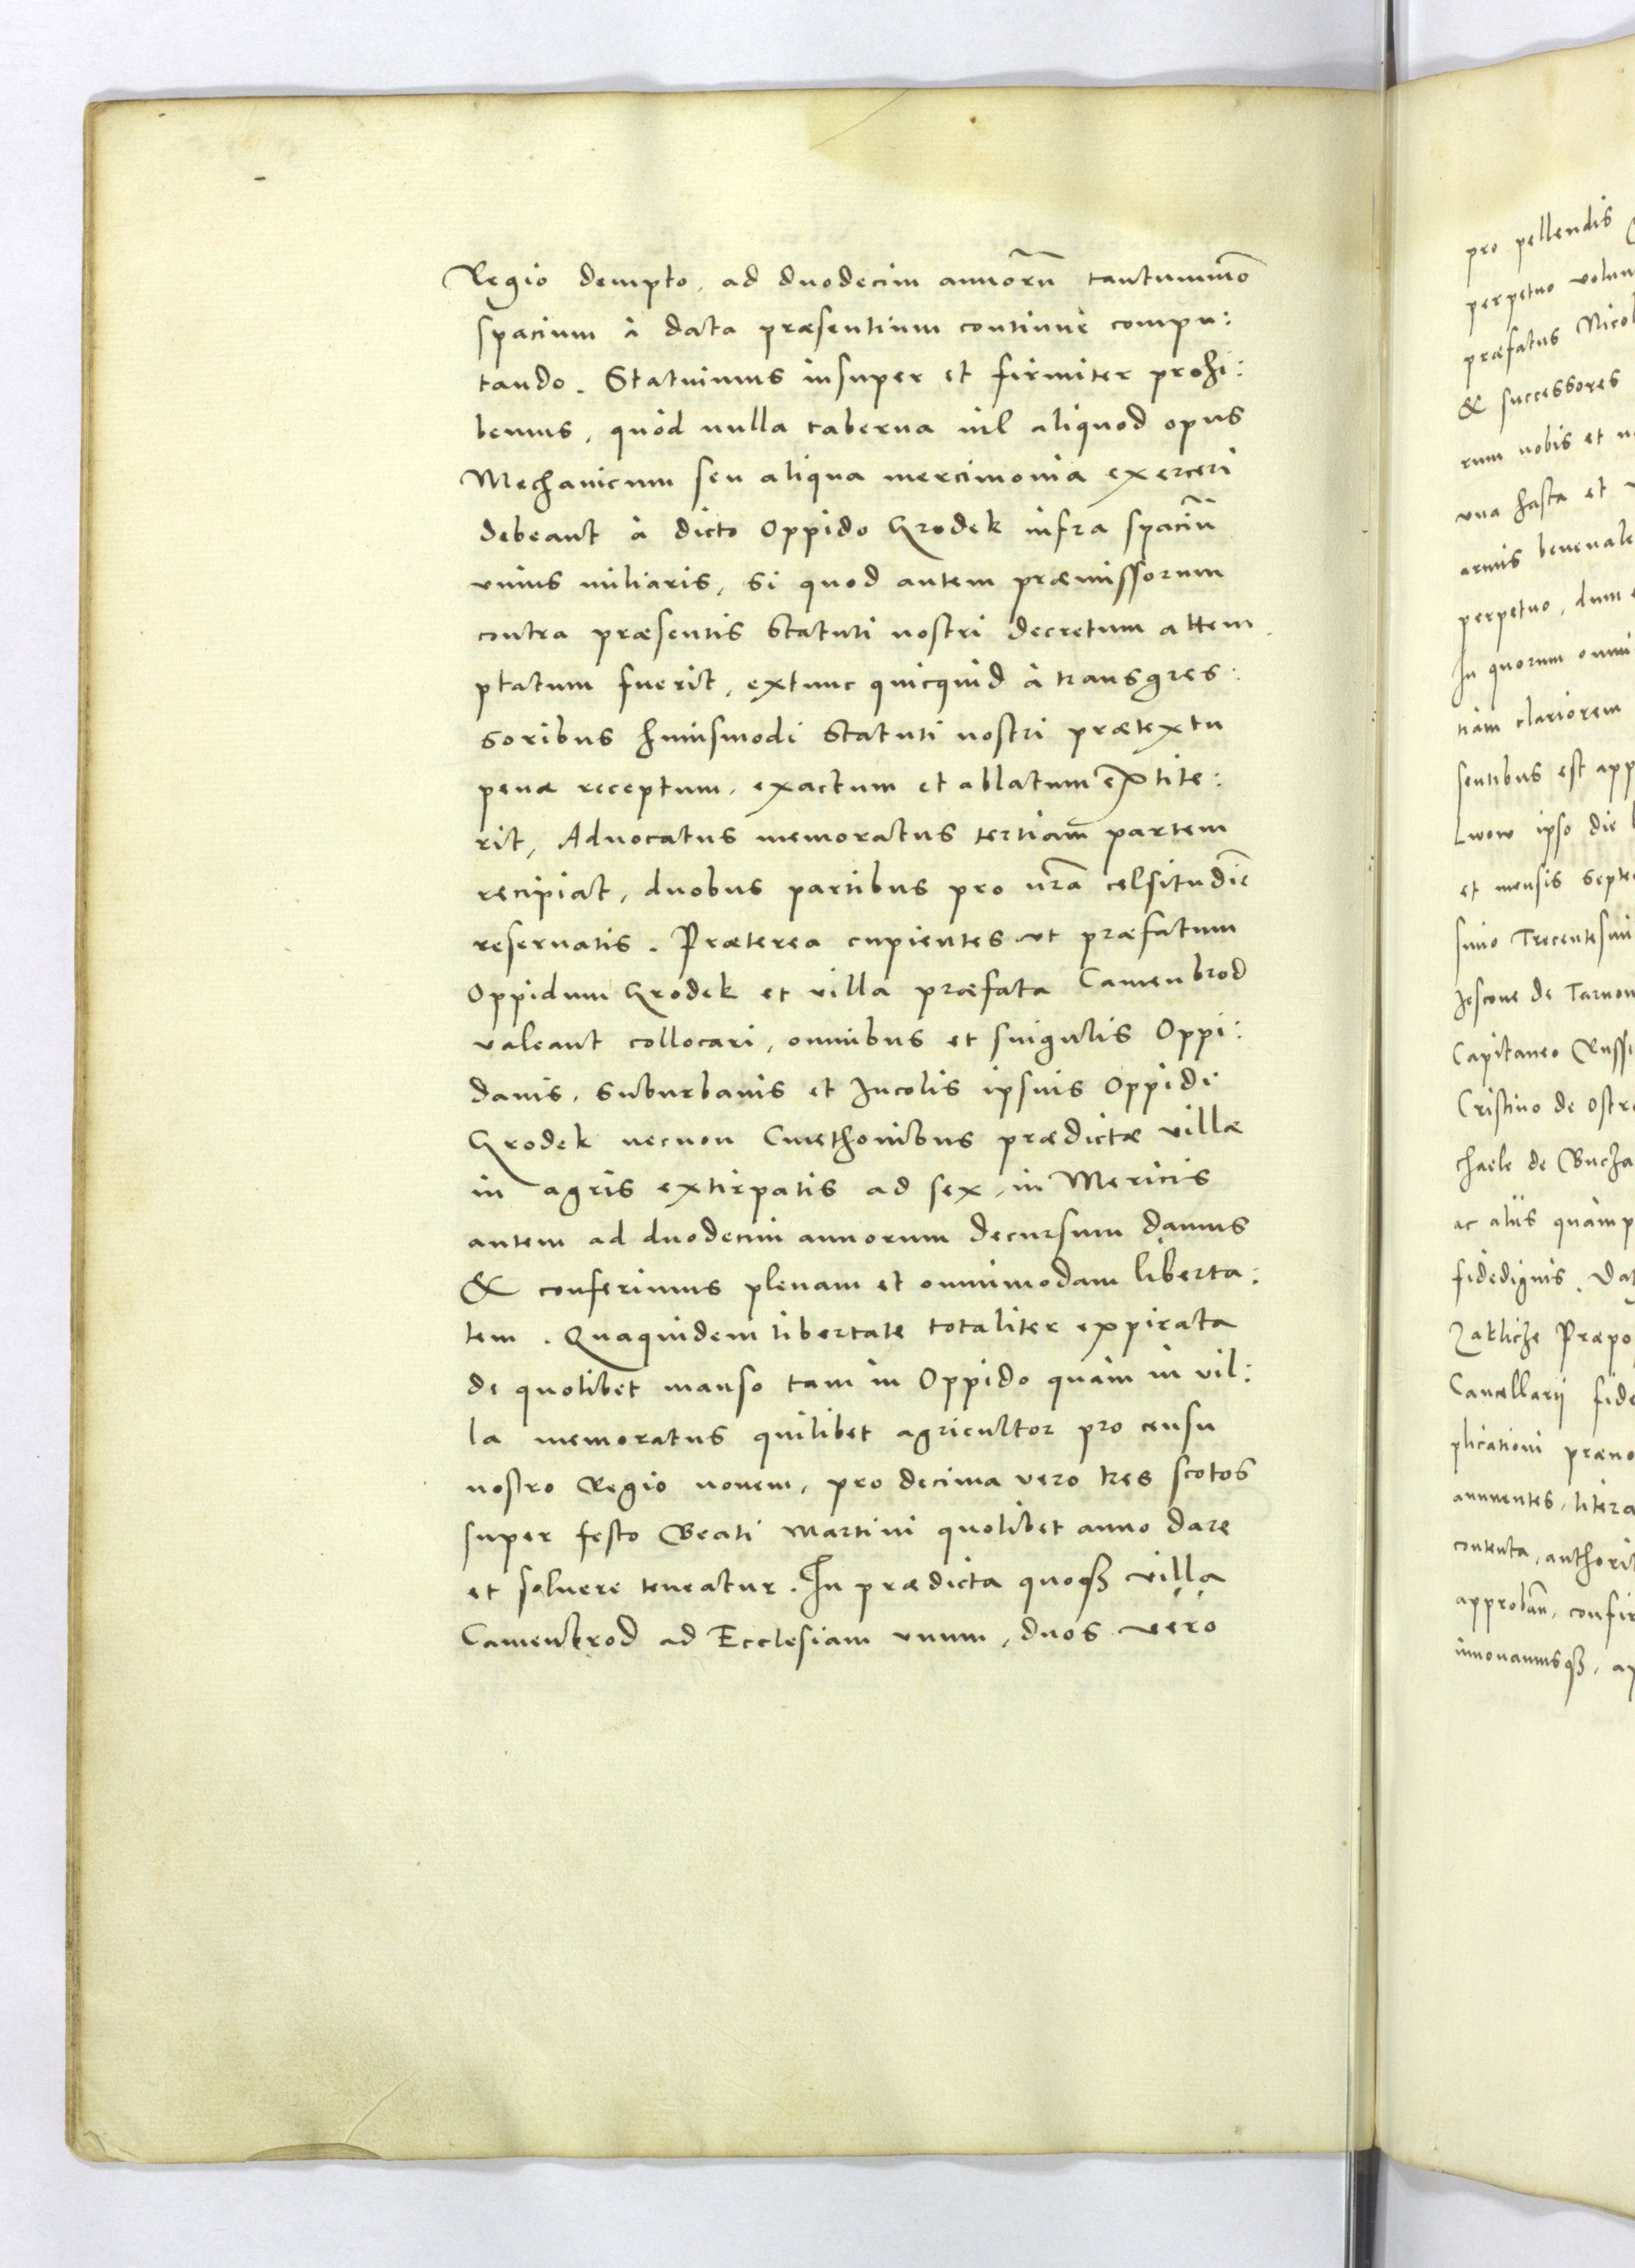 Regio dempto, ad duodecim annorũ tantummõ
spacium à data præsentium continuè compu:
tando. Statuimus insuper et firmiter prohi:
bemus, quòd nulla taberna nil aliquod opus
Mechanicum seu aliqua mercimonia exerceri
debeant à dicto Oppido Grodek infra spaciũ
vnius miliaris, si quod autem præmissorum
contra præsentis Statuti nostri decretum attem
ptatum fuerit, extunc quicquid à transgres:
soribus huiusmodi Statuti nostri prætextu
penæ receptum, exactum et ablatum extite:
rit, Aduocatus memoratus tertiam partem
recipiat, duobus partibus pro nr̃a celsitudĩe
reseruatis. Præterea cupientes vt præfatum
Oppidum Grodek et villa præfata Camenbrod
valeant collocari, omnibus et singulis Oppi:
danis, suburbanis et Incolis ipsius Oppidi
Grodek necnon Cmethonibus prædictæ villæ
in agris extirpatis ad sex, in Mericis
autem ad duodecim annorum decursum damus
& conferimus plenam et omnimodam liberta:
tem. Quaquidem libertate totaliter expirata
de quolibet manso tam in Oppido quàm in vil:
la memoratus quilibet agricultor pro censu
nostro Regio nouem, pro decima vero tres scotos
super festo Beati Martini quolibet anno dare
et soluere teneatur. In prædicta quoqꝫ villa
Camenbrod ad Ecclesiam vnum, duos vero
pro pellendis
perpetuo
præfatus
& successores
rum nobis et
vna hasta et
armis
perpetuo, dum
In quorum
tiam clariorem
sentibus est
Lwow ipso die
et mensis
simo
Jescone de
Capitaneo
Cristino de
chaele de
ac aliis
fidedignis.
Zaklicze
Cancellarij
plicationi
annuentes,
contenta,
approbãũ,
innouamusqꝫ,